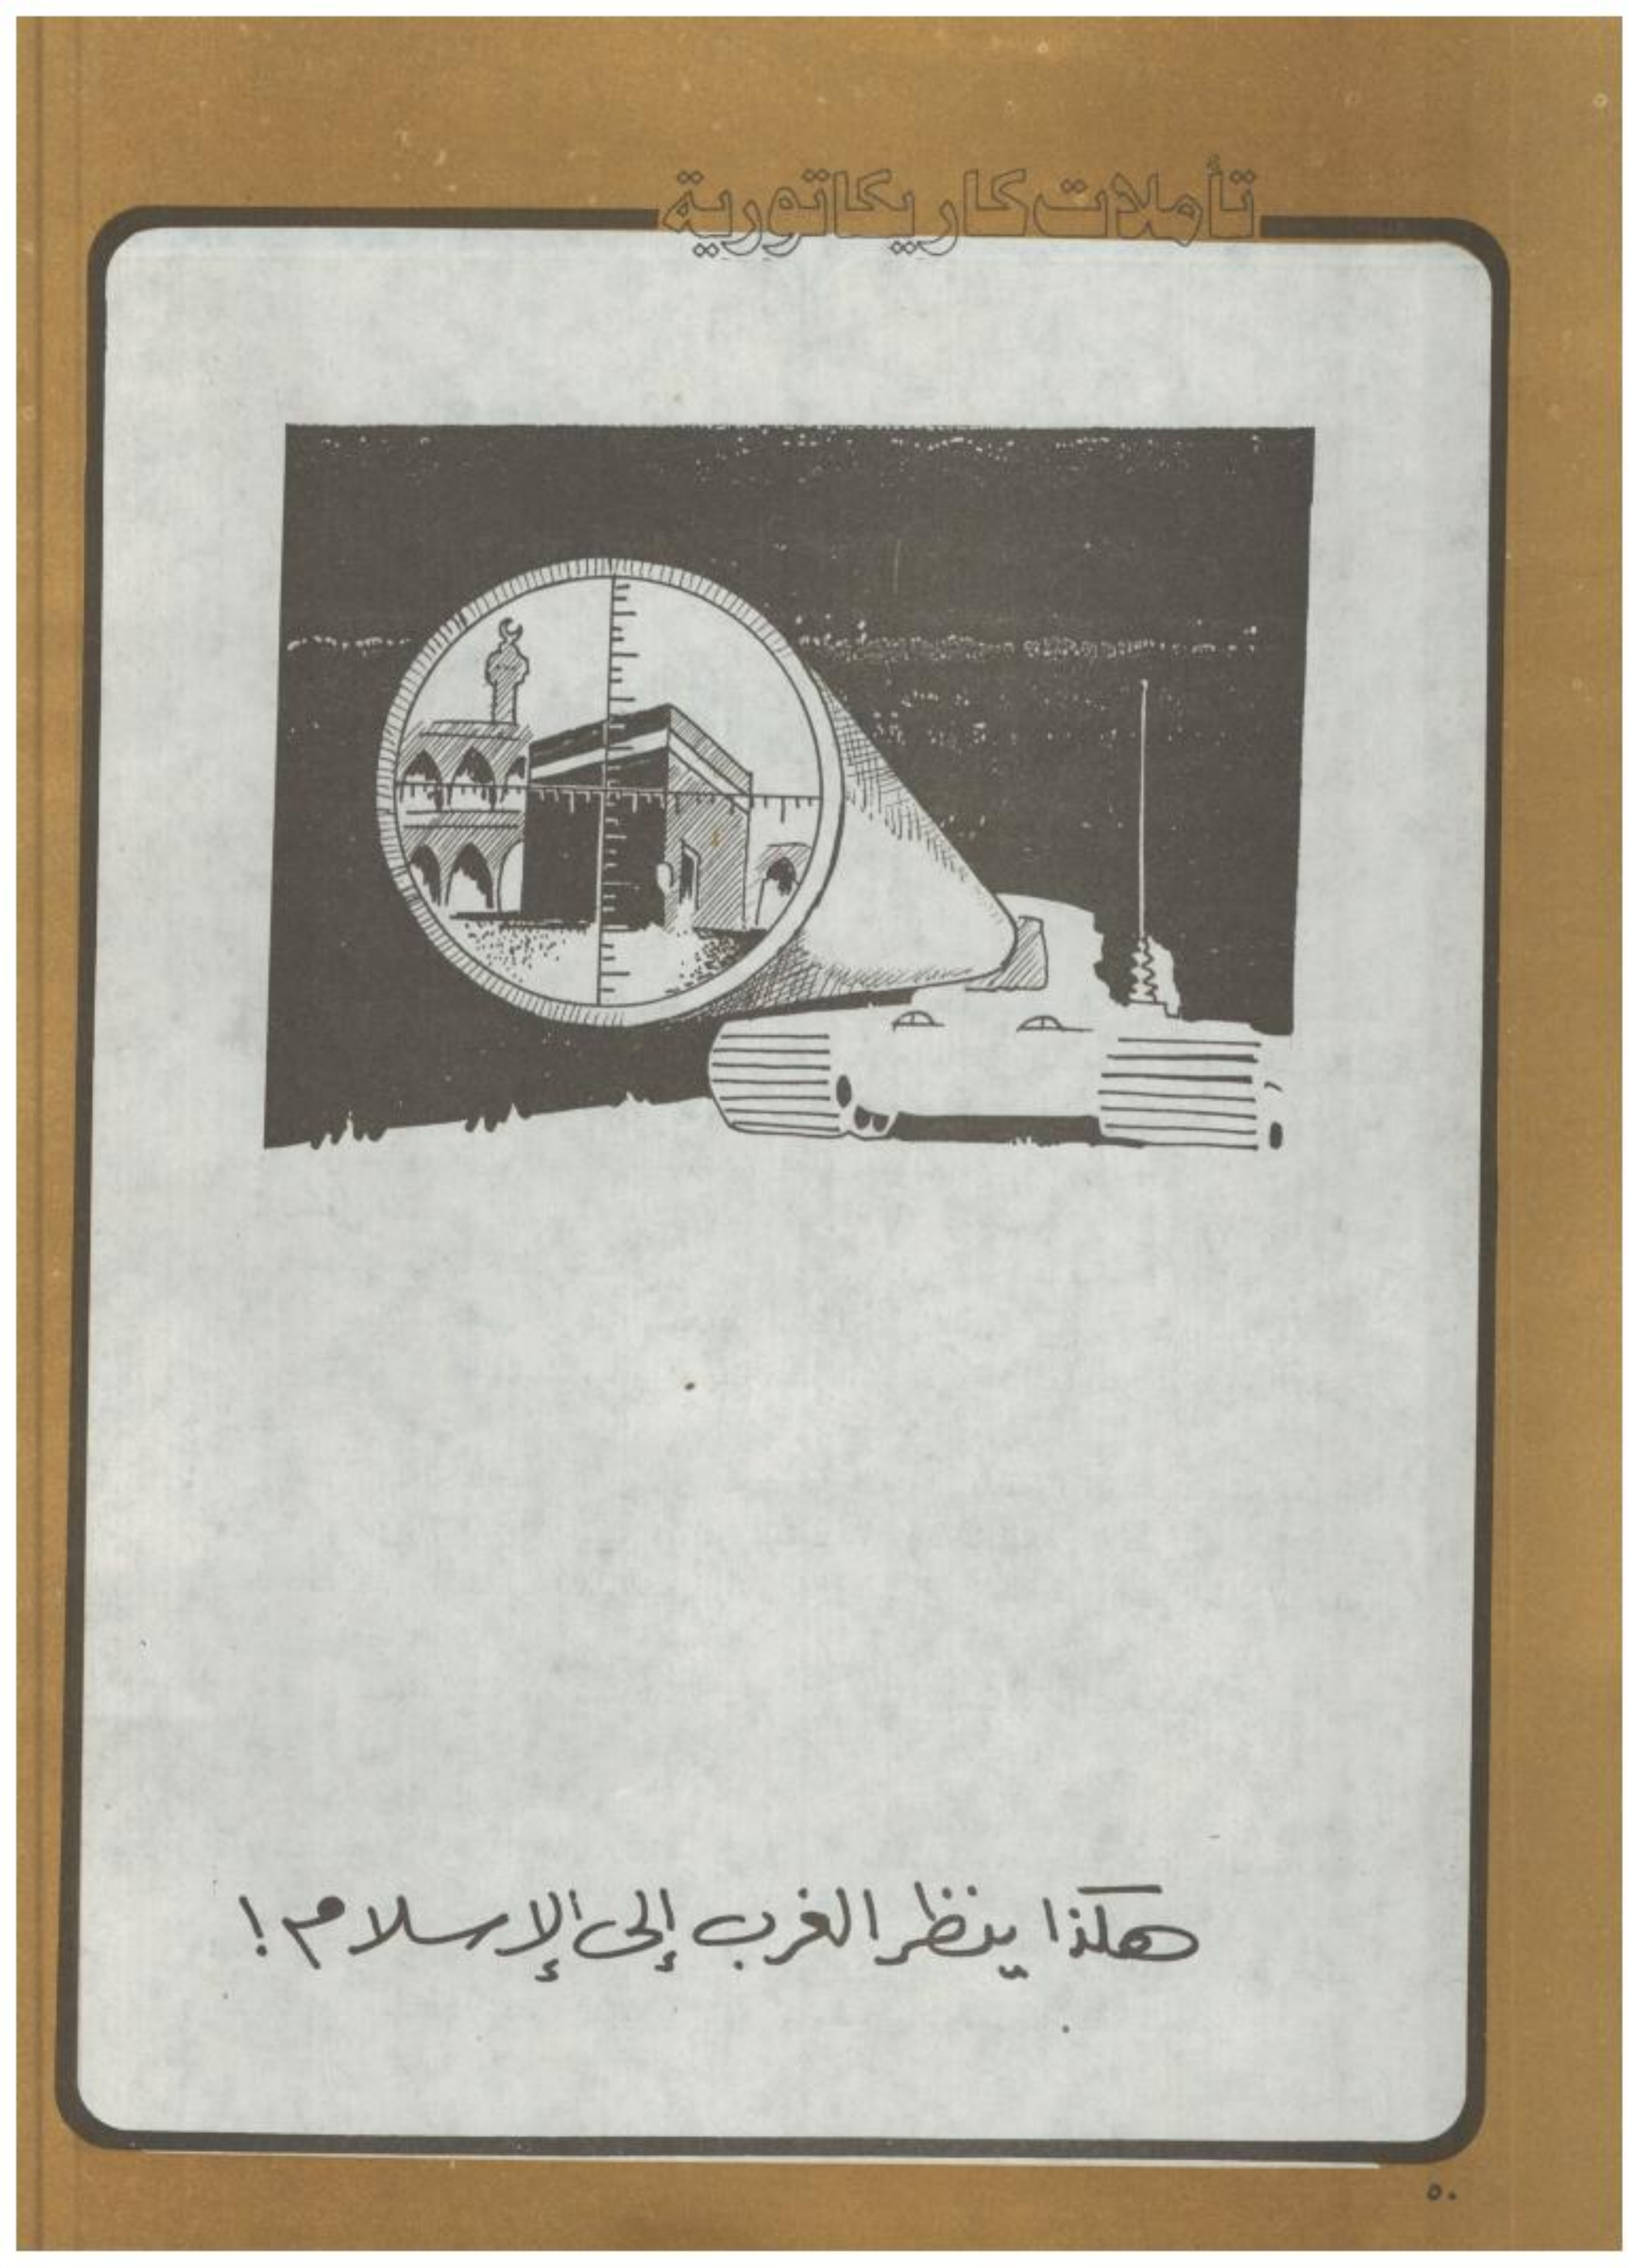 تأملات كاريكاتورية
هكذا ينظر الغرب إلى الإسلام!
٥٠